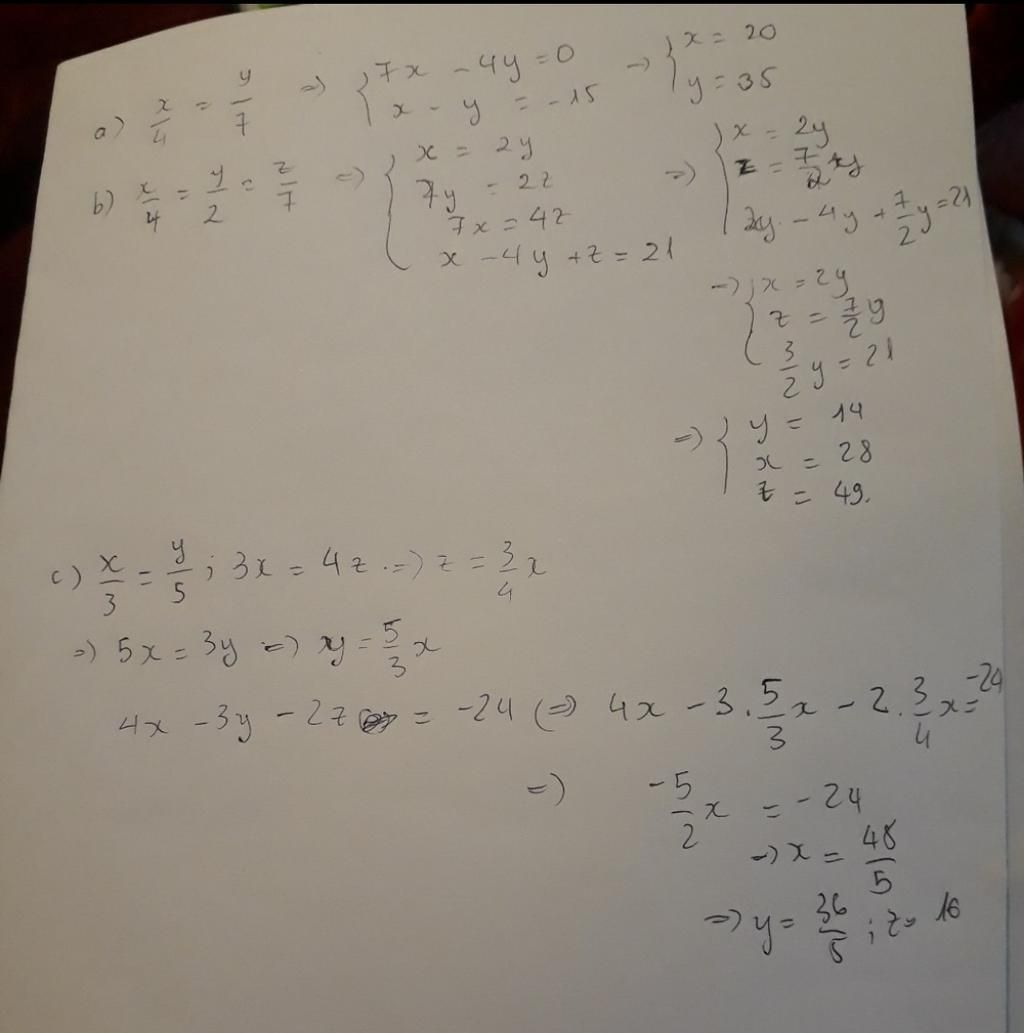 a) x/4 = y/7 => { 7x - 4y = 0 => { x = 20
x - y = -15 y = 35
b) x/4 = y/2 = z/7 => { x = 2y => { x = 2y
7y = 2z z = 7/2 y
7x = 4z 2y - 4y + 7/2 y = 21
x - 4y + z = 21
=> { x = 2y
z = 7/2 y
3/2 y = 21
=> { y = 14
x = 28
z = 49.
c) x/3 = y/5 ; 3x = 4z => z = 3/4 x
=> 5x = 3y => y = 5/3 x
4x - 3y - 2z = -24 (=> 4x - 3 . 5/3 x - 2 . 3/4 x = -24
=> -5/2 x = -24
=> x = 48/5
=> y = 36/5 ; z = 16